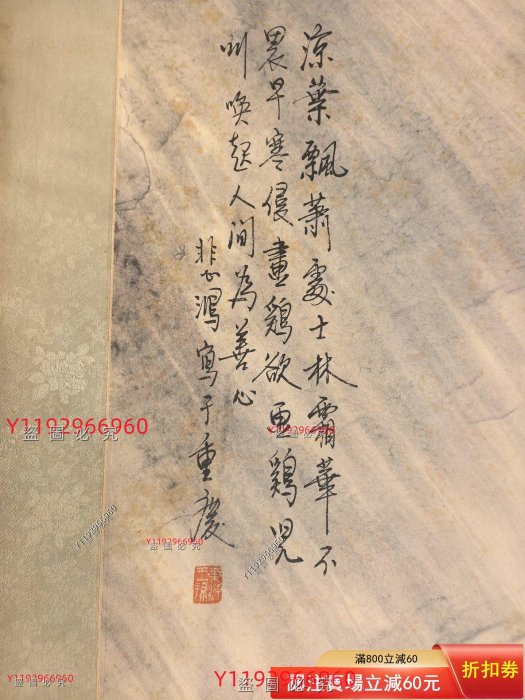 涼葉飄蕭處士林霜華不
畏早寒侵畫鷄欲画鷄児
叫喚起人間為善心
悲鴻寫于重慶
Y1192966960
盜圖必究
Y1192966960
盜圖必究
Y1192966960
盜圖必究
Y1192966960
盜圖必究
Y1192966960
盜圖必究
Y1192966960
盜圖必究
滿800立減60
關注賣場立減60元
折扣券